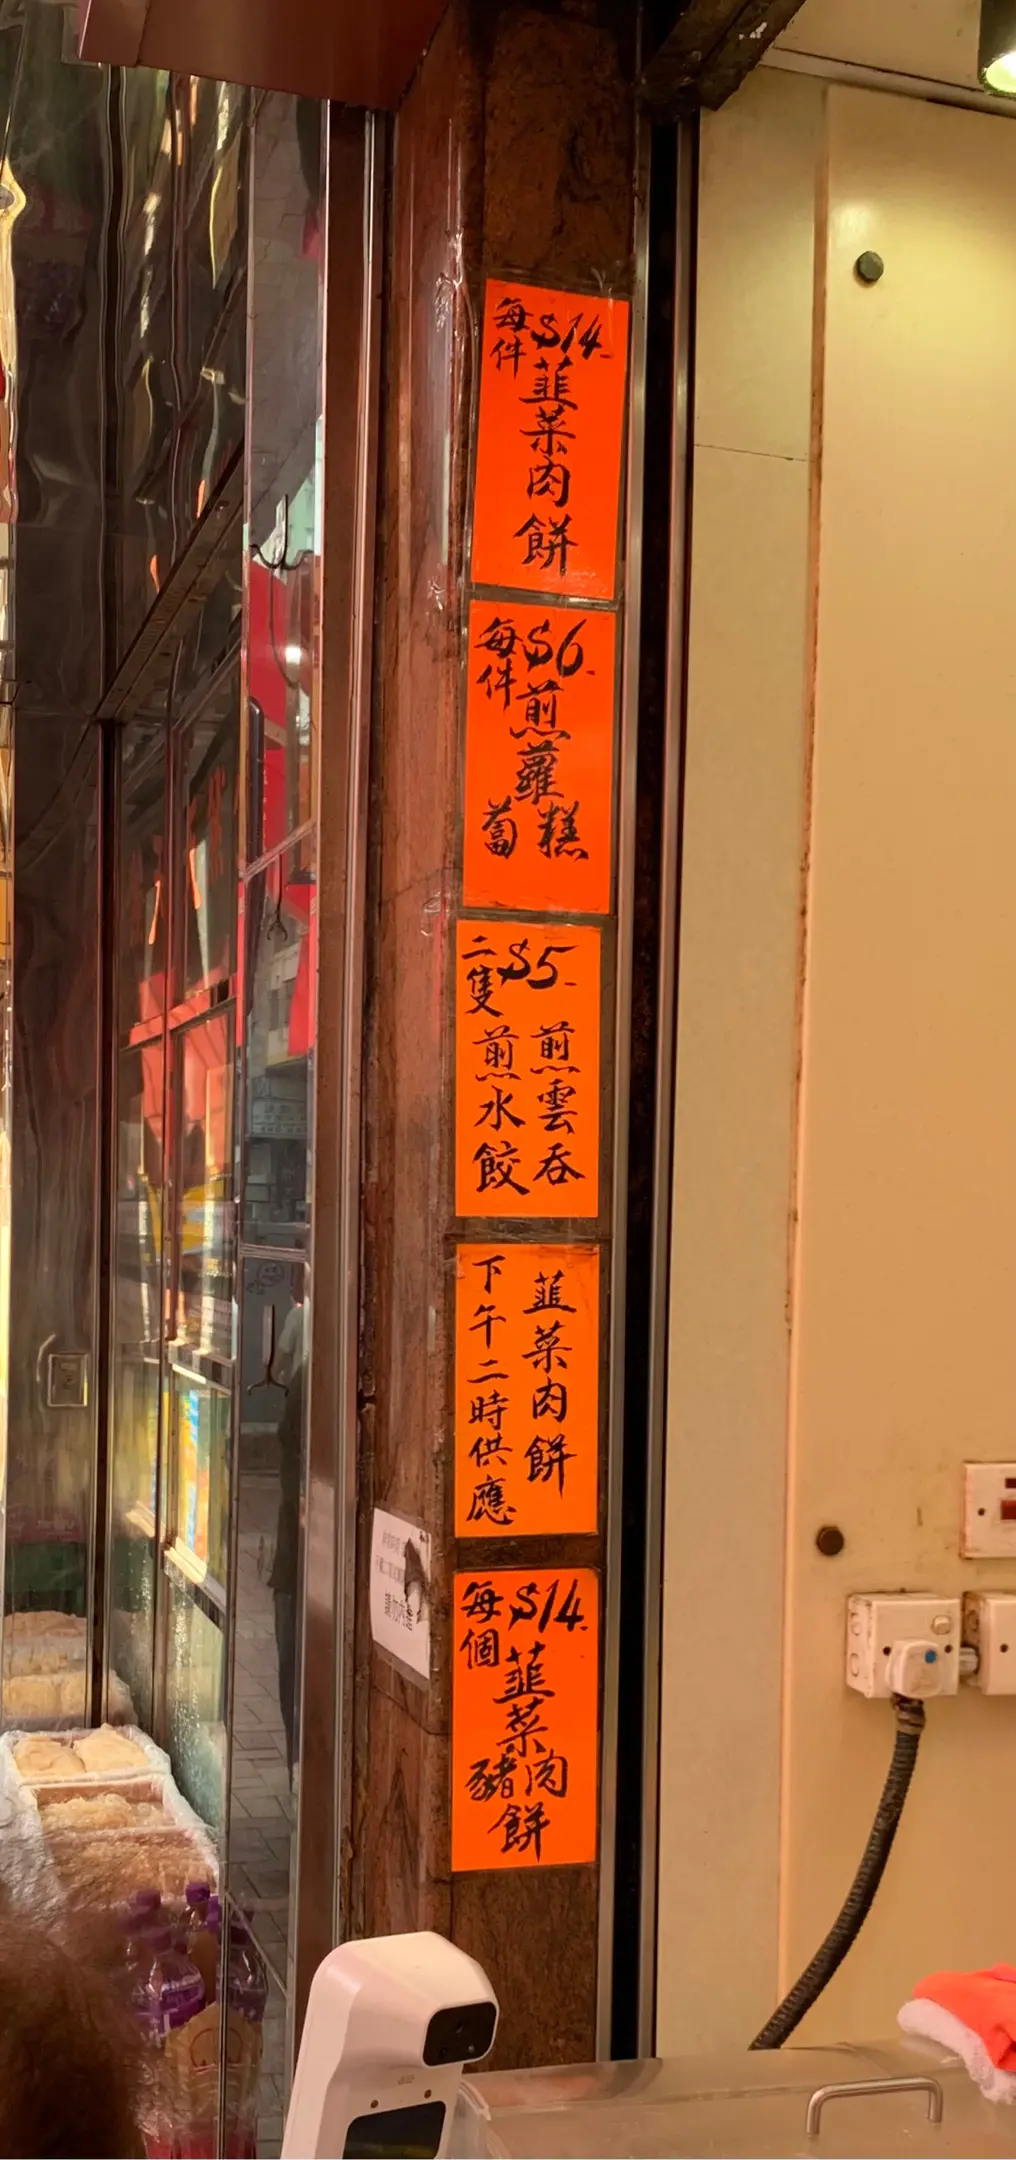 每件
$14-
韮菜肉餅
每件
$6-
煎蘿蔔糕
二隻
$5-
煎雲吞
煎水餃
韮菜肉餅
下午二時供應
每個
$14-
韮菜豬肉餅
請勿內進